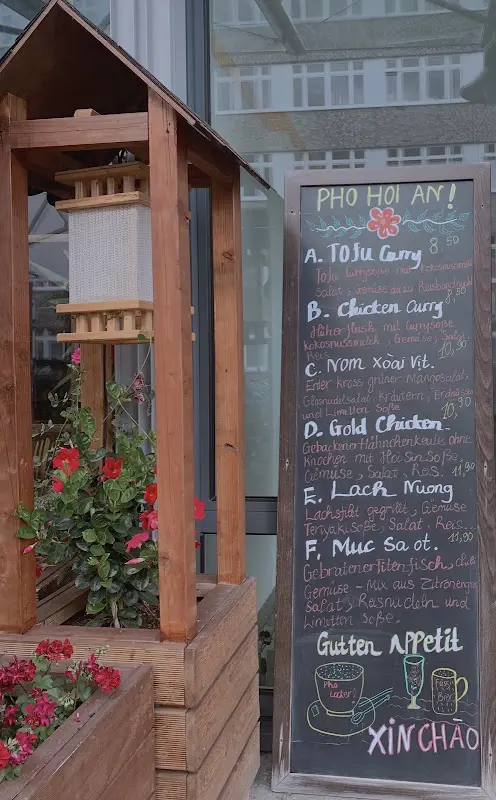 PHO HOI AN!
A. Tofu Curry 8,50
Tofu Currysoße mit Kokosnussmilch
Salat, Gemüse dazu Reisbandnudeln
B. Chicken Curry 8,50
Hühnerfleisch mit Currysoße
Kokosnussmilch, Gemüse, Salat
Reis 10,90
C. Nom Xoài Vit.
Enter kross grüner-Mangosalat,
Glasnudelsalat, Kräutern, Erdnüsse
und Limetten Soße 10,90
D. Gold Chicken
Gebackener Hähnchenkeule ohne
Knochen mit Hoi Sin Soße,
Gemüse, Salat, Reis. 11,90
E. Lach Nuong
Lachsfilet gegrillt, Gemüse
Teriyaki Soße, Salat, Reis...
F. Muc Sa ot. 11,90
Gebratener Tintenfisch, dazu
Gemüse-Mix aus Zitronengras
Salat, Reisnudeln und
Limetten Soße.
Gutten Appetit
Pho
Fass
Bier
XIN CHÀO